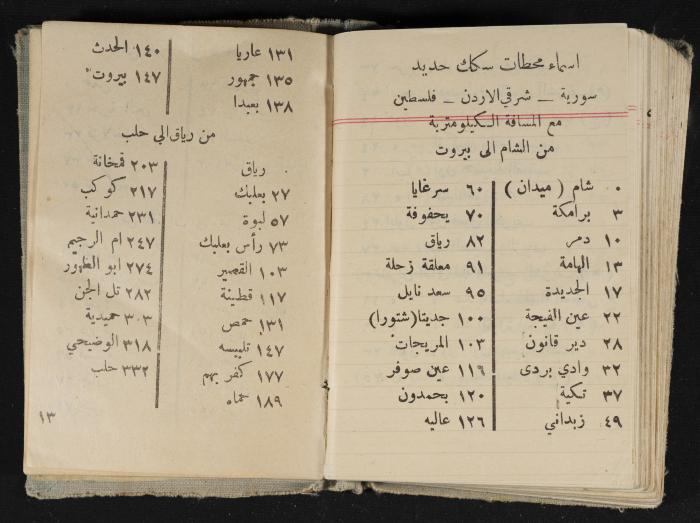 اسماء محطات سكك حديد
سورية _ شرقي الاردن _ فلسطين
مع المسافة الكيلومترية
من الشام الى بيروت
٠ شام ( ميدان )
٣ برامكة
١٠ دمر
١٣ الهامة
١٧ الجديدة
٢٢ عين الفيجة
٢٨ دير قانون
٣٢ وادي بردى
٣٧ تكية
٤٩ زبداني
٦٠ سرغايا
٧٠ يحفوفة
٨٢ رياق
٩١ معلقة زحلة
٩٥ سعد نايل
١٠٠ جديتا (شتورا)
١٠٣ المريجات
١١٦ عين صوفر
١٢٠ بحمدون
١٢٦ عاليه
١٣١ عاريا
١٣٥ جمهور
١٣٨ بعبدا
١٤٠ الحدث
١٤٧ بيروت
من رياق الي حلب
٠ رياق
٢٧ بعلبك
٥٧ لبوة
٧٣ رأس بعلبك
١٠٣ القصير
١١٧ قطينة
١٣١ حمص
١٤٧ تلبيسه
١٧٧ كفر بهم
١٨٩ حماه
٢٠٣ قمخانة
٢١٧ كوكب
٢٣١ حمدانية
٢٤٧ ام الرجيم
٢٧٤ ابو الظهور
٢٨٢ تل الجن
٣٠٣ حميدية
٣١٨ الوضيحي
٣٣٢ حلب
١٣